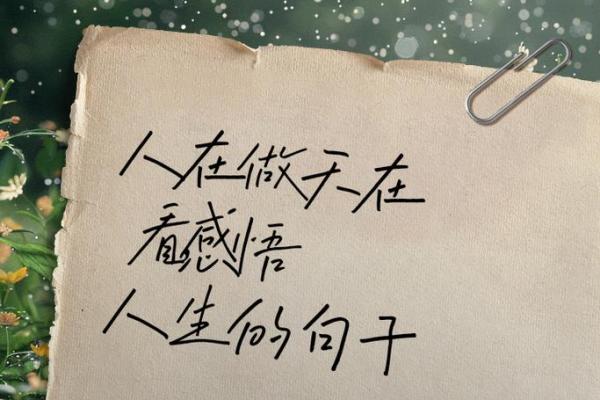 人在做天在
看感悟
人生的句子